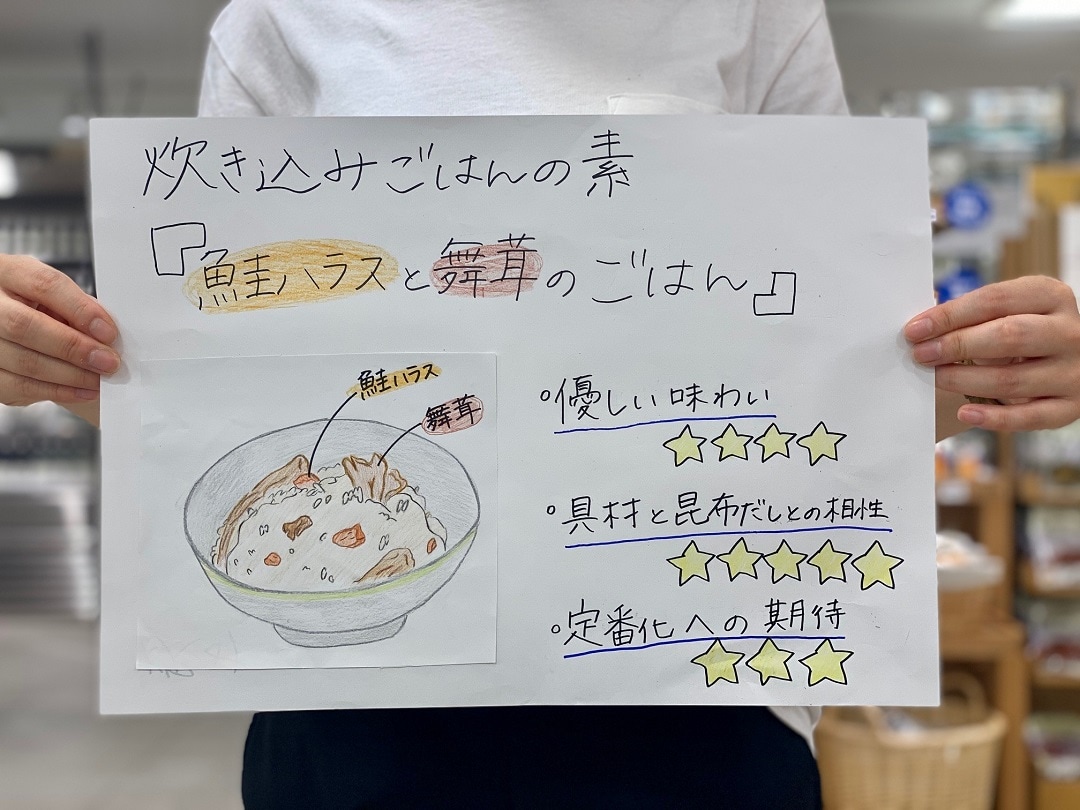 炊き込みごはんの素
『鮭ハラスと舞茸のごはん』
鮭ハラス
舞茸
・優しい味わい
・具材と昆布だしとの相性
・定番化への期待